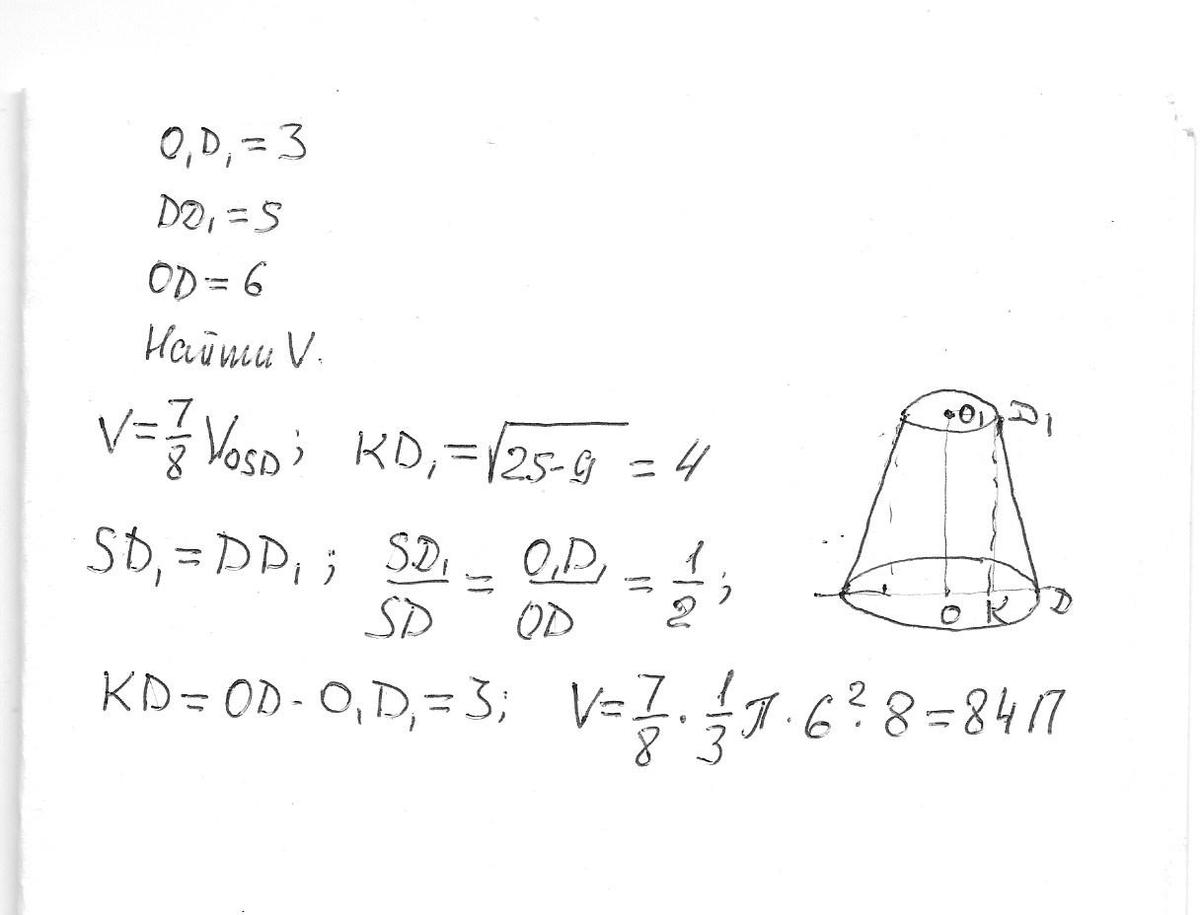 O₁D₁ = 3
DD₁ = 5
OD = 6
Найти V.
V = 7/8 V_OSD; KD₁ = √(25-9) = 4
SD₁ = DD₁; SD₁/SD = O₁D₁/OD = 1/2;
KD = OD - O₁D₁ = 3; V = 7/8 · 1/3 π · 6² · 8 = 84π
O₁ D₁
O K D